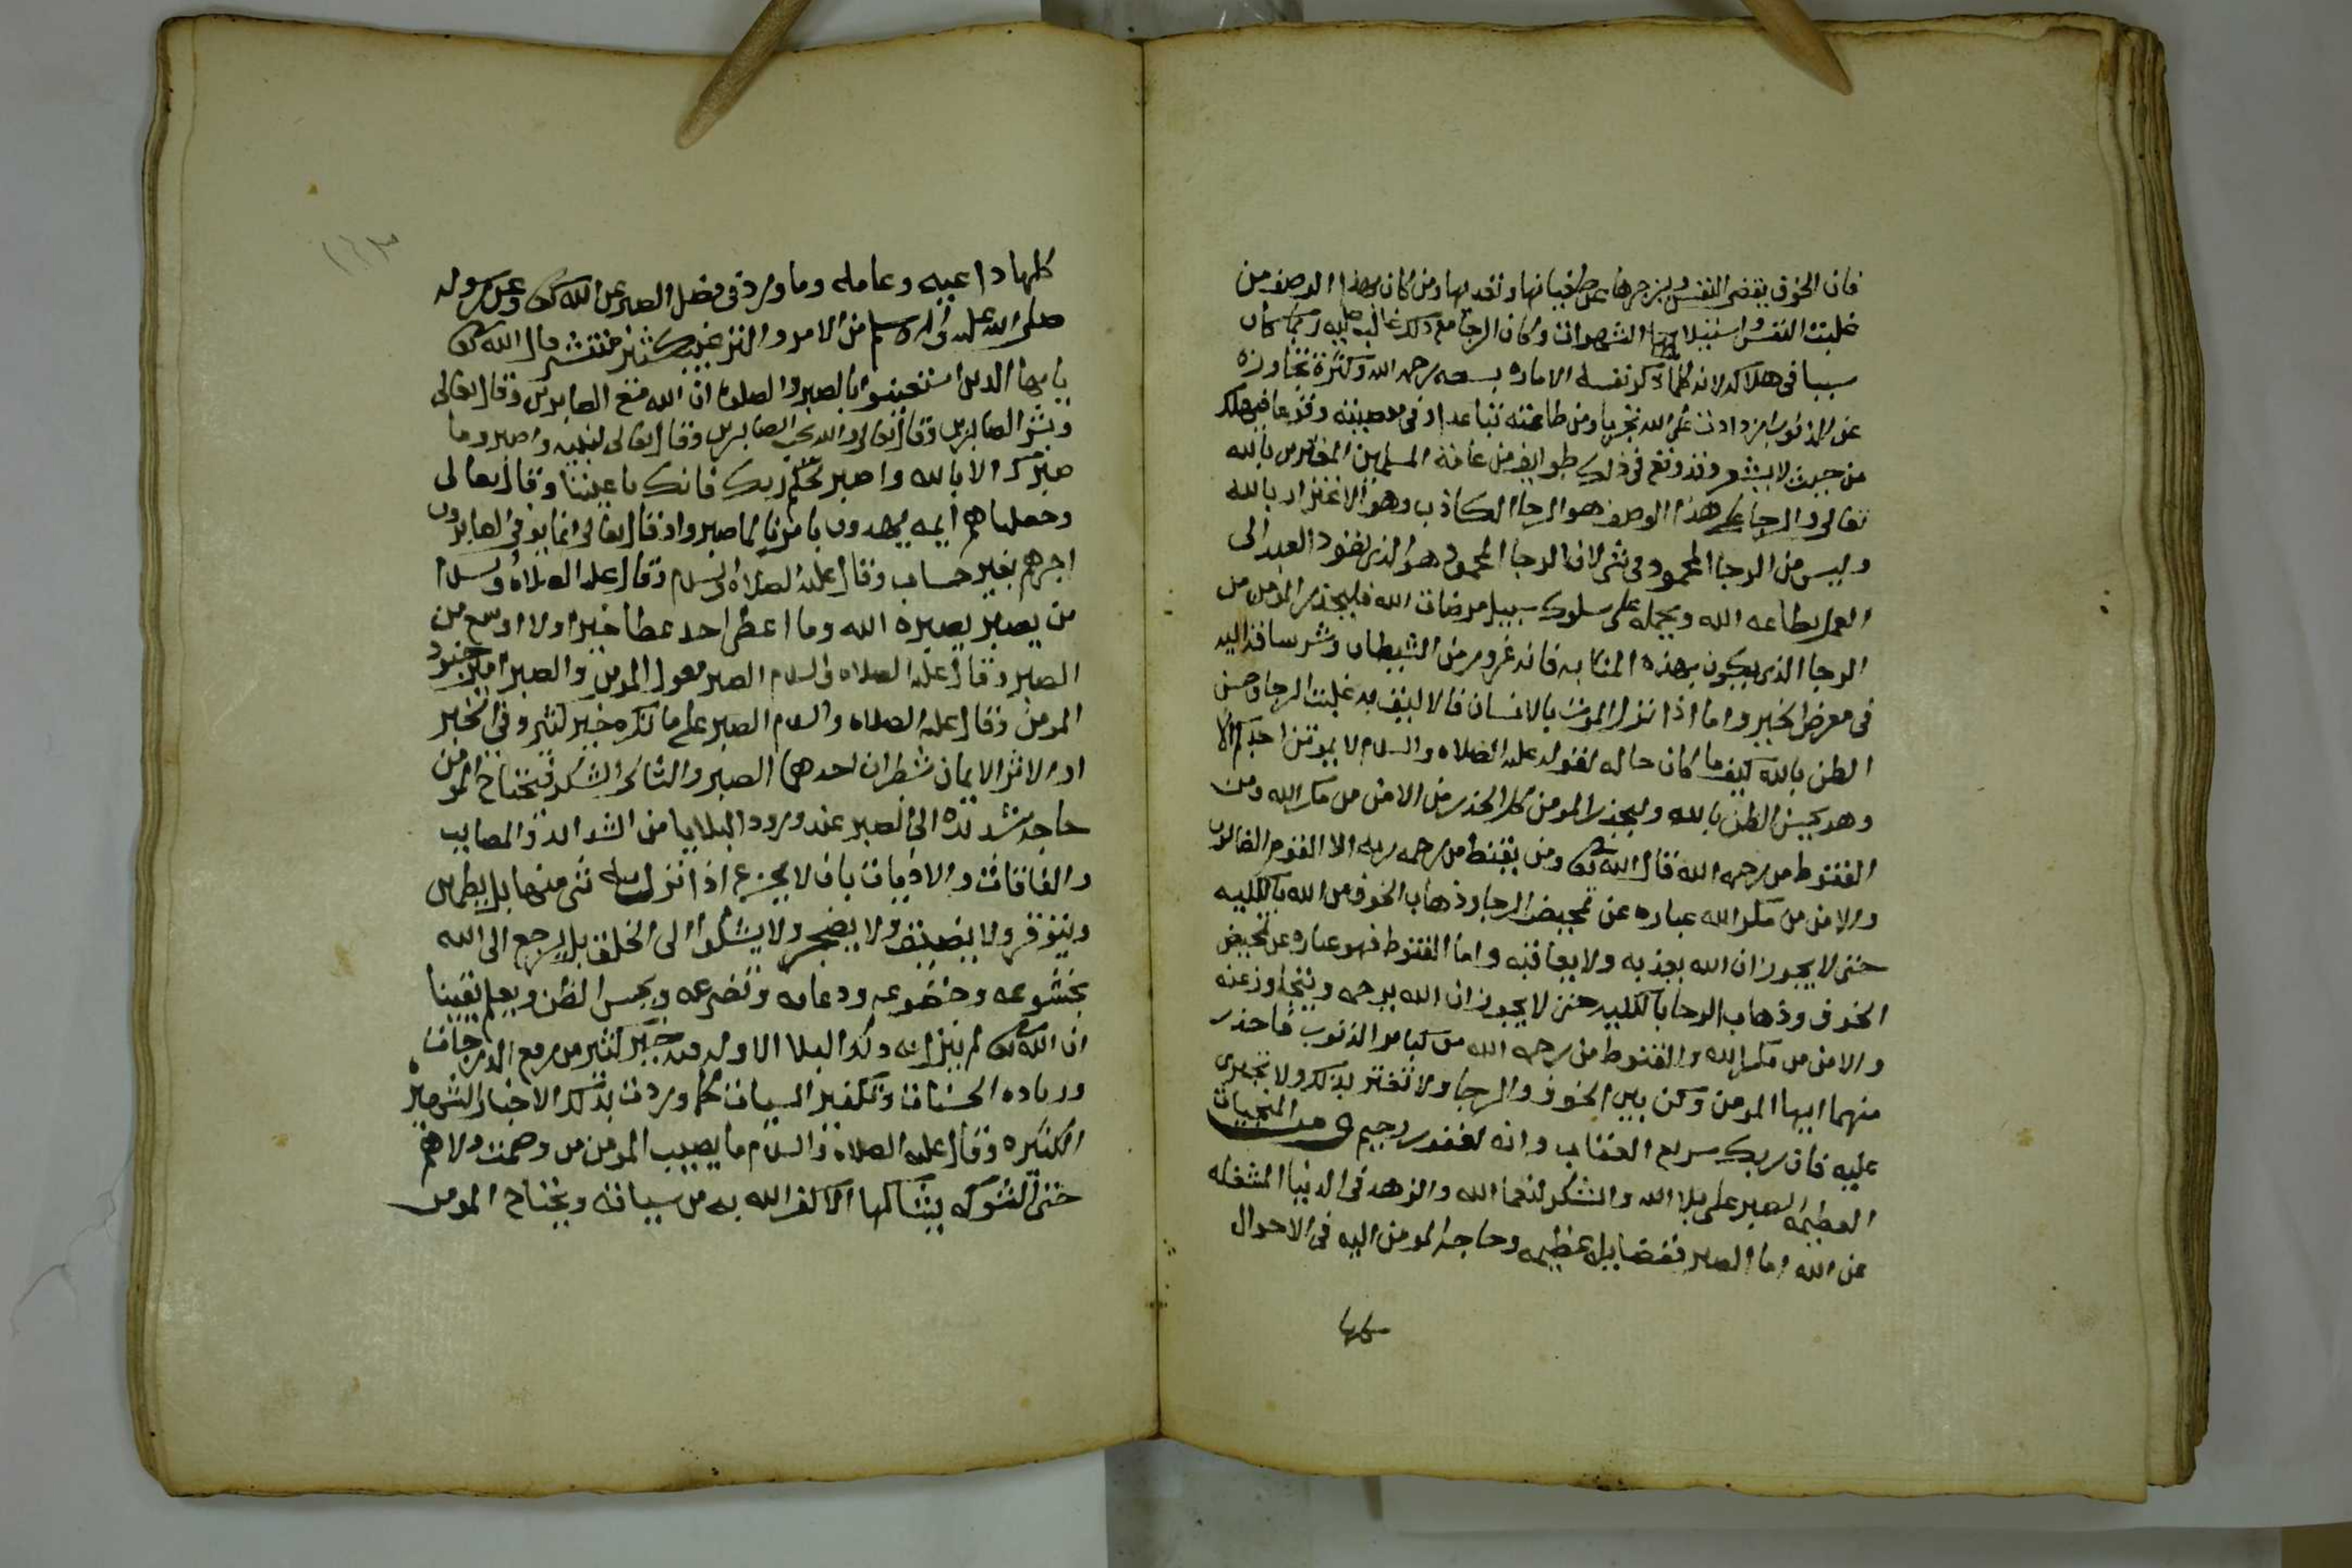 فان الخوف يقضى النفس ويزجرها عن طغيانها وتعديها ومن كان بهذا الوصف من
غلبت النفس واستيلا الشهوات وكان الرجا مع ذلك غالب عليه ربما كان
سببا فى هلاكه لانه كلما ذكر نفسه الاماره بسعه رحمه الله وكثرة تجاوزه
عن الذنوب ازدادت على الله تجريا ومن طاعته تباعدا وفى معصيته وقوعا فيهلك
من حيث لا يشعر وقد وقع فى ذلك طوايف من عامة المسلمين المغترين بالله
تعالى والرجا على هذا الوصف هو الرجا الكاذب وهو الاغترار بالله
وليس من الرجا المحمود فى شى لان الرجا المحمود هو الذى يقود العبد الى
العمل بطاعه الله ويحمله على سلوك سبيل مرضات الله فليحذر المومن من
الرجا الذى يكون بهذه المثابه فانه غرور من الشيطان وشر ساقه اليه
فى معرض الخير واما اذا نزل الموت بالانسان فالاليق به غلبت الرجا وحسن
الظن بالله كيف ما كان حاله لقوله عليه الصلاه والسلام لا يموتن احدكم الا
وهو يحسن الظن بالله وليحذر المومن كل الحذر من الامن من مكر الله ومن
القنوط من رحمه الله قال الله تعالى ومن يقنط من رحمه ربه الا القوم الضالون
والامن من مكر الله عباره عن تمحيض الرجا وذهاب الخوف من الله بالكليه
حتى لا يجوز ان الله يعذبه ولا يعاقبه واما القنوط فهو عباره عن تمحيض
الخوف وذهاب الرجا بالكليه حتى لا يجوز ان الله يرحمه ويتجاوز عنه
والامن من مكر الله والقنوط من رحمه الله من كباير الذنوب فاحذر
منهما ايها المومن وكن بين الخوف والرجا ولا تغتر بذلك ولا تجترى
عليه فان ربك سريع العقاب وانه لغفور رحيم ومن المنجيات
العظيمه الصبر على بلا الله والشكر لنعما الله والزهد فى الدنيا المشغله
عن الله اما الصبر ففضايله عظيمه وحاجة المومن اليه فى الاحوال
كلها
كلها داعيه وعامله وما ورد فى فضل الصبر عن الله تعالى وعن رسوله
صلى الله عليه وآله وسلم من الامر والترغيب كثير منتشر قال الله تعالى
يايها الذين استعينوا بالصبر والصلوة ان الله مع الصابرين وقال تعالى
وبشر الصابرين وقال تعالى والله يحب الصابرين وقال تعالى لنبيه واصبر وما
صبرك الا بالله واصبر لحكم ربك فانك باعيننا وقال تعالى
وجعلناهم ايمه يهدون بامرنا لما صبروا وقال تعالى انما يوفى الصابرون
اجرهم بغير حساب وقال عليه الصلاه والسلام وقال عليه الصلاة والسلام
من يصبر يصبره الله وما اعطى احد عطا خيرا ولا اوسع من
الصبر وقال عليه الصلاه والسلام الصبر معول المومن والصبر امير جنود
المومن وقال عليه الصلاه والسلام الصبر على ما تكره خير كثير وفى الخبر
او الاثر الايمان شطران احدهما الصبر والثانى الشكر فيحتاج المومن
حاجة شديدة الى الصبر عند ورود البلايا من الشدايد والمصايب
والفاقات والاذيات بان لا يجزع اذا نزل به شى منها بل يطمئن
ويتوقر ولا يضيق ولا يضجر ولا يشكوا الى الخلق بل يرجع الى الله
بخشوعه وخضوعه ودعايه وتضرعه ويحسن الظن ويعلم يقينا
ان الله تعالى لم ينزل به ذلك البلا الا وله فيه خير كثير من رفع الدرجات
وزياده الحسنات وتكفير السيات كما وردت بذلك الاخبار الشهيره
الكثيره وقال عليه الصلاة والسلام ما يصيب المومن من وصب ولا هم
حتى الشوكه يشاكها الا كفر الله به من سياته ويحتاج المومن